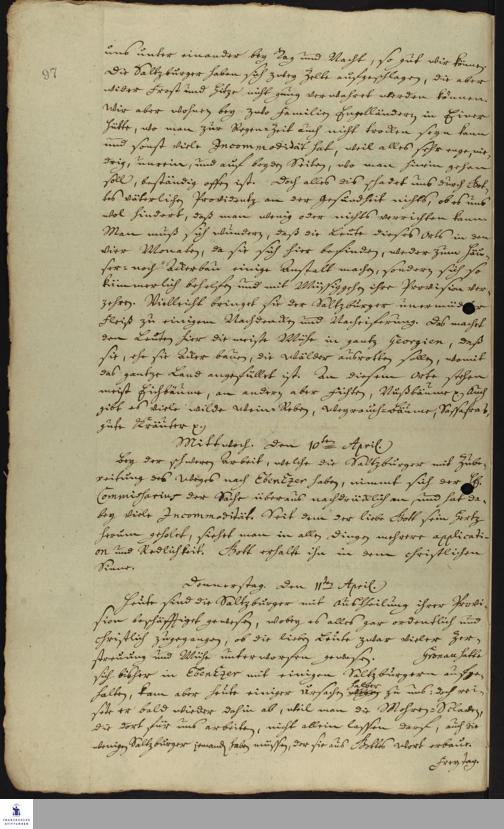 97
uns unter einander bey Tag und Nacht, so gut wir können.
Die Saltzburger haben sich zwey Zelte aufgeschlagen, die aber
wider Frost und Hitze nicht gnug verwahret werden können.
Wir aber wohnen bey zwo Familien Engelländern in Einer
Hütte, wo man zur Regen Zeit auch nicht trocken seyn kann
und sonst viele Incommodität hat, weil alles sehr enge, nie-
drig, unrein, und auf beyden Seiten, wo man hinein gehen
soll, beständig offen ist. Doch alles dis schadet uns durch Got-
tes väterlichen Providentz an der Gesundheit nichts, ob es uns
wol hindert, daß man wenig oder nichts verrichten kann.
Man muß sich wundern, daß die Leute dieses Orts in den
vier Monaten, da sie sich hier befinden, weder zum Häu-
ser- noch Ackerbau einige Anstalt machen, sondern sich so
kümmerlich behelfen und mit Müssiggehen ihre Provision ver-
zehren. Vielleicht bringet sie der Saltzburger unermüdeter
Fleiß zu einigem Nachdencken und Nacheiferung. Das machet
den Leuten hier die meiste Mühe in gantz Georgien, daß
sie, ehe sie Äcker bauen, die Wälder ausrotten sollen, womit
das gantze Land angefüllet ist. An diesem Orte stehen
meist Eichbäume, an andern aber Fichten, Nußbäume x. Auch
gibt es viele wilde Wein-Reben, Weyrauch-Bäume, Sassafras,
gute Kräuter x.
Mittwoch. den 10ten April.
Bey der schweren Arbeit, welche die Saltzburger mit Zube-
reitung des Weges nach Ebenezer haben, nimmt sich der H.
Commissarius der Sache überaus nachdrücklich an und hat da-
bey viele Incommodität. Seit dem der liebe Gott sein Hertz
herum geholet, siehet man in allen Dingen mehrere applicati-
on und Redlichkeit. Gott erhalte ihn in dem christlichen
Sinne.
Donnerstag. den 11ten April.
Heute sind die Saltzburger mit Austheilung ihrer Provi-
sion beschäfftiget gewesen, wobey es alles gar ordentlich und
christlich zugegangen, ob die lieben Leute zwar vieler Zer-
streuung und Mühe unterworfen gewesen. Gronau hatte
sich bisher in Ebenezer mit einigen Saltzburgern aufge-
halten, kam aber heute einiger Ursachen halber zu uns: doch rei-
sete er bald wieder dahin ab, weil man die Mohren-Sclaven,
die dort für uns arbeiten, nicht allein lassen darf, auch die
wenigen Saltzburger jemand haben müssen, der sie aus Gottes Wort erbaue.
Freytag.
FRANCKESCHE
STIFTUNGEN